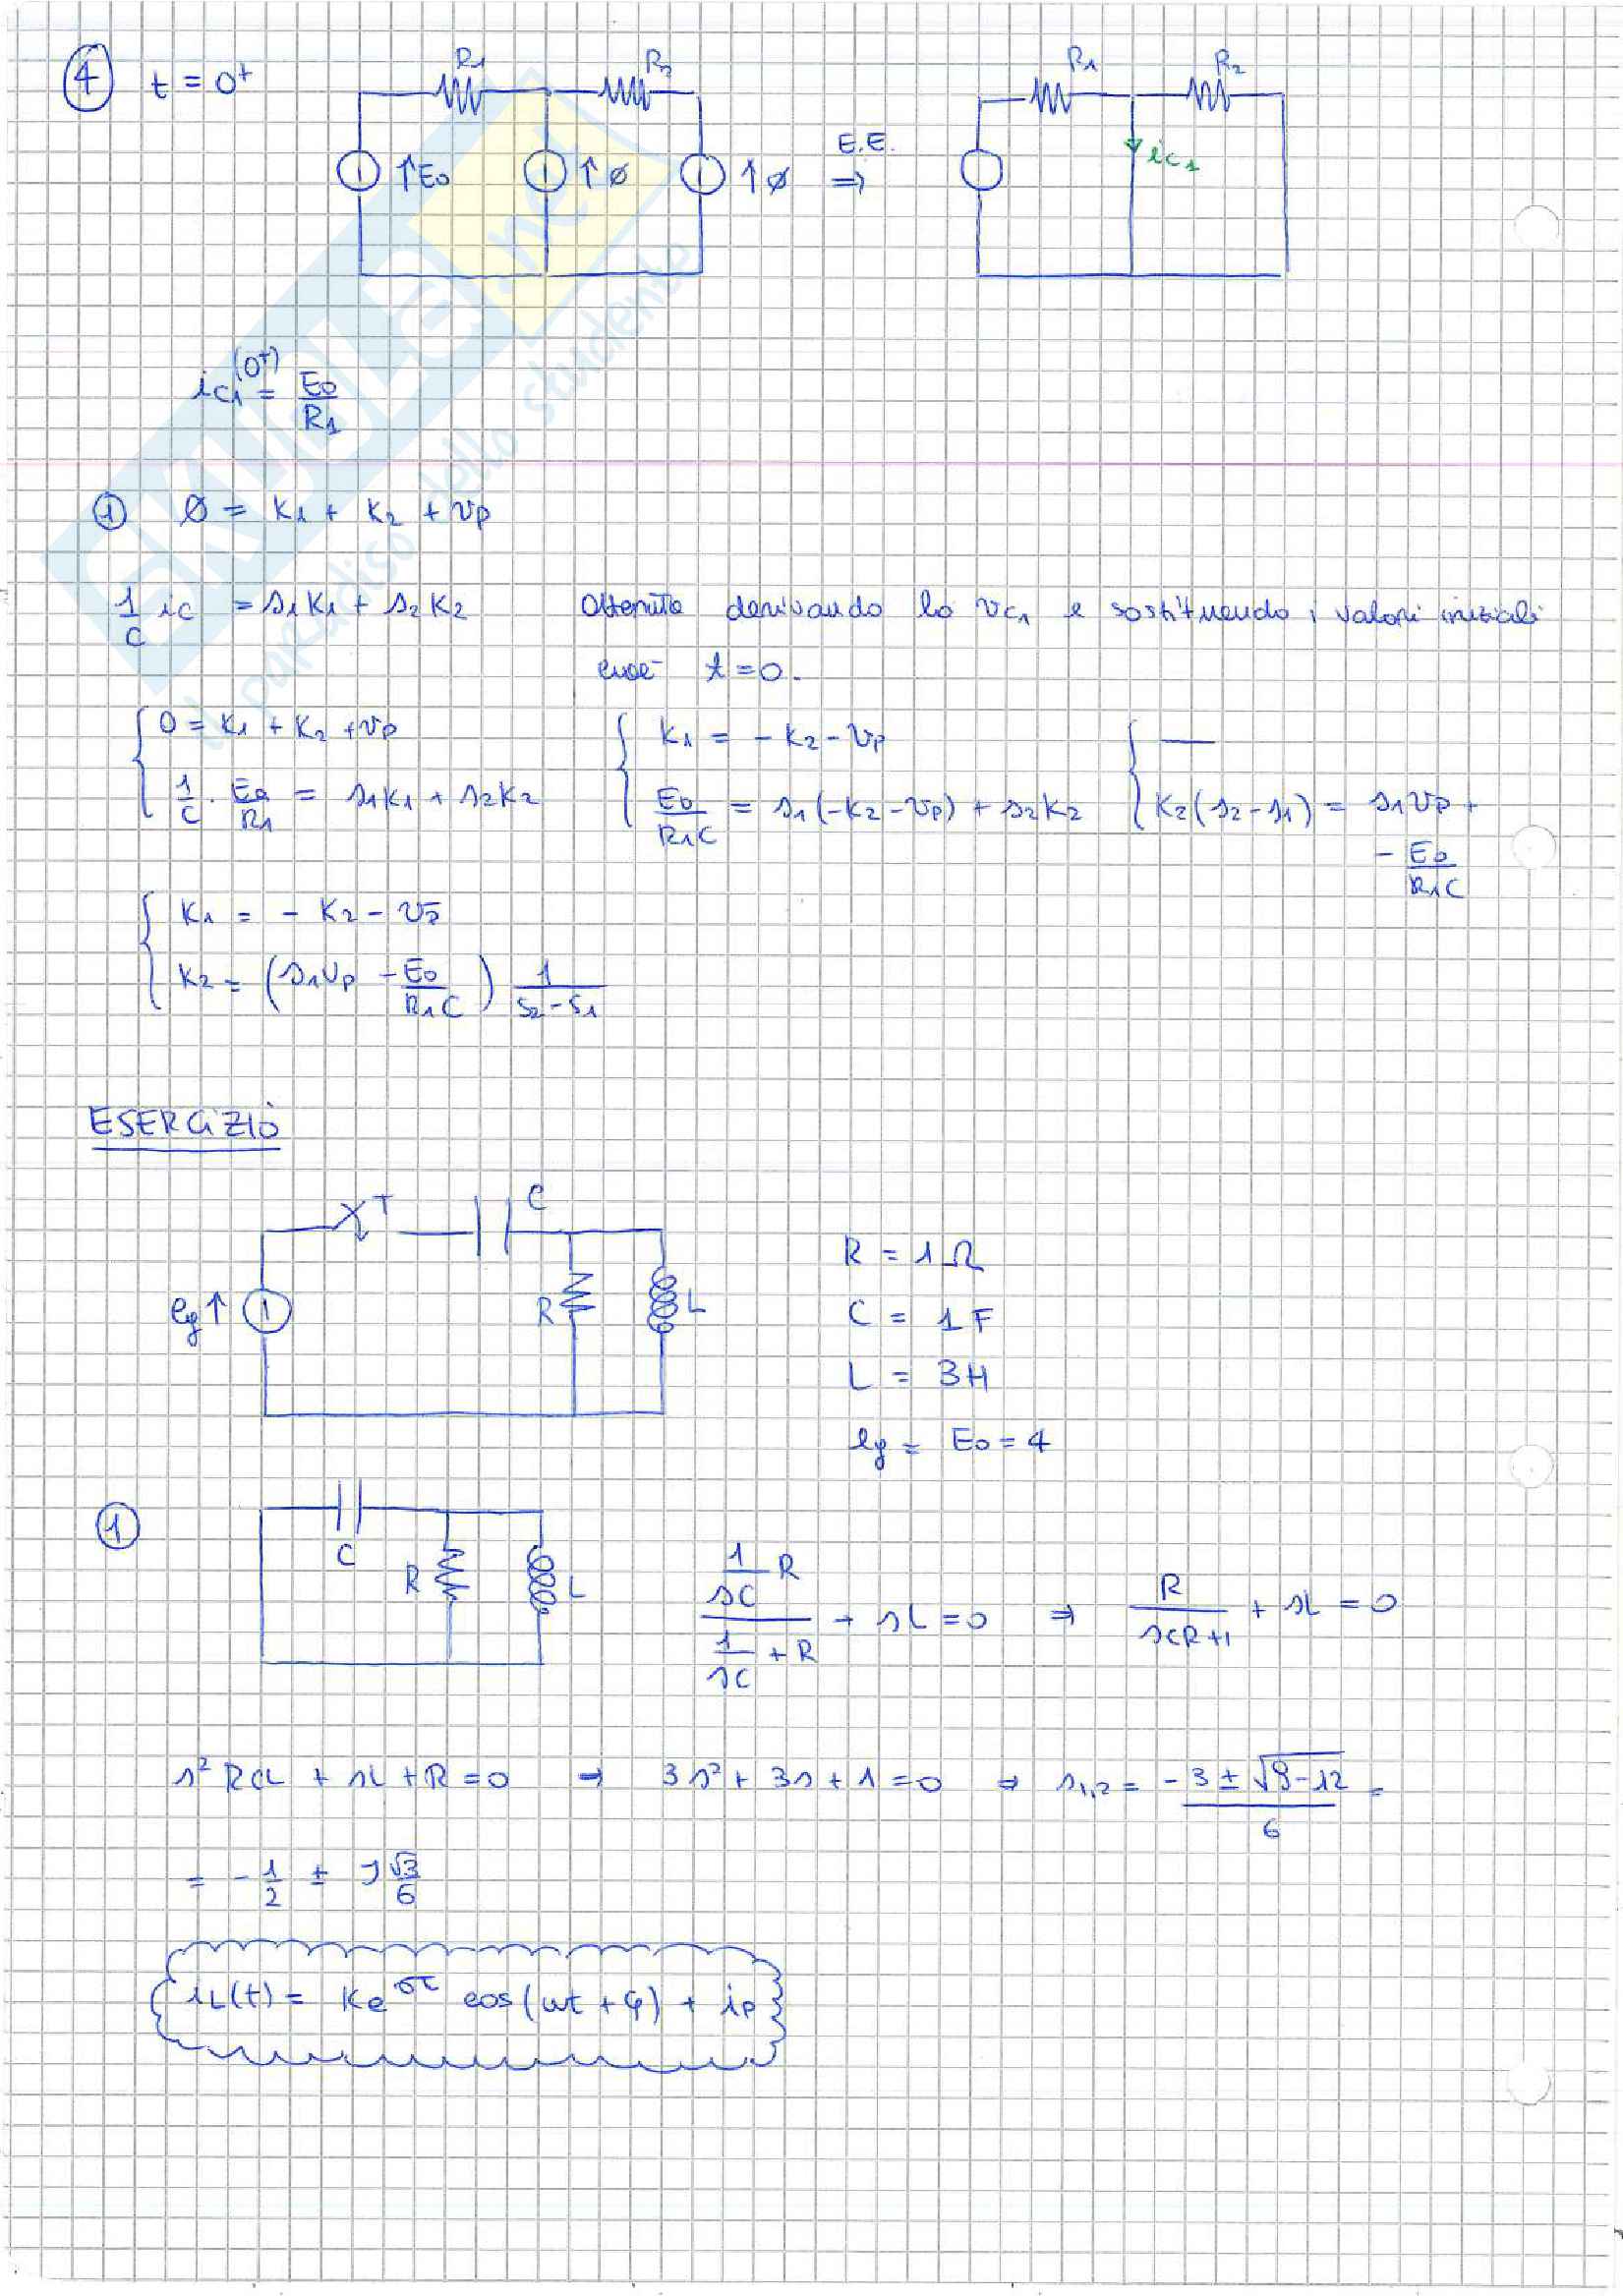 ④ t = 0⁺
R₁ R₂ R₁ R₂
↑E₀ ↑ø ↑ø E.E. ⇒ ic₁
ic₁(0⁺) = E₀/R₁
① Ø = K₁ + K₂ + vp
1/C ic = s₁K₁ + s₂K₂ Ottenuta derivando la vc₁ e sostituendo i valori iniziali
cioè t = 0.
{ 0 = K₁ + K₂ + vp { K₁ = - K₂ - vp { —
1/C · E₀/R₁ = s₁K₁ + s₂K₂ E₀/R₁C = s₁(-K₂ - vp) + s₂K₂ K₂(s₂-s₁) = s₁vp +
- E₀/R₁C
{ K₁ = - K₂ - vp
K₂ = (s₁vp - E₀/R₁C) 1/s₂-s₁
ESERCIZIO
T C
eg↑ R L
R = 1Ω
C = 1F
L = 3H
eg = E₀ = 4
①
C R L
(1/sC R)/(1/sC + R) + sL = 0 ⇒ R/sCR+1 + sL = 0
s²RCL + sL + R = 0 ⇒ 3s² + 3s + 1 = 0 ⇒ s₁,₂ = -3 ± √9-12 / 6 =
= - 1/2 ± J √3/6
iL(t) = Ke^σt cos(ωt + φ) + ip
SKUOLA.net
il paradiso dello studente